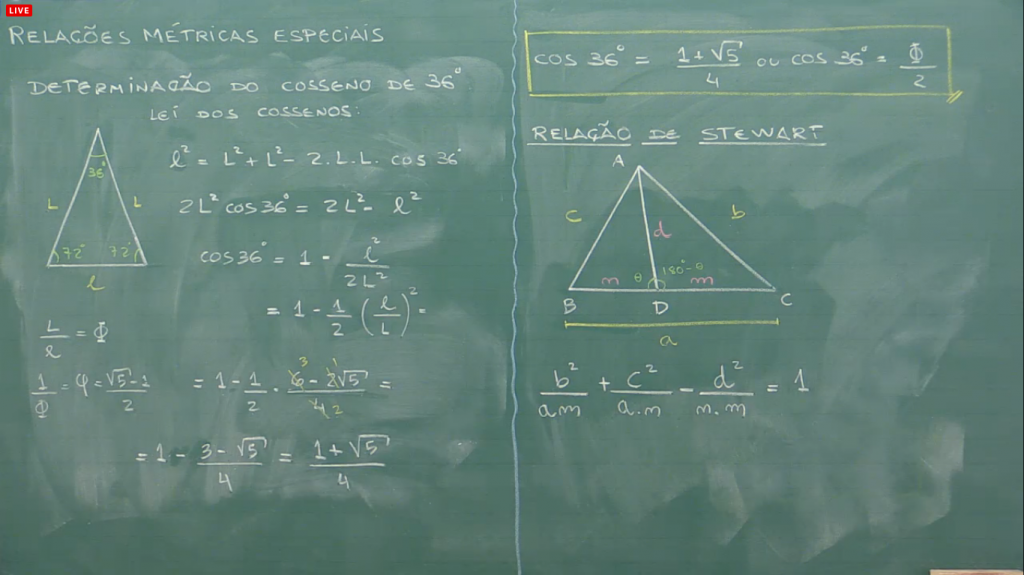 LIVE
RELAÇÕES MÉTRICAS ESPECIAIS
DETERMINAÇÃO DO COSSENO DE 36°
LEI DOS COSSENOS:
36°
L L
72° 72°
l
l² = L² + L² - 2.L.L. cos 36°
2L² cos 36° = 2L² - l²
cos 36° = 1 - l²/2L²
= 1 - 1/2 (l/L)² =
L/l = Φ
1/Φ = φ = √5-1/2
= 1 - 1/2 . 6-2√5/4 =
3 1
2
= 1 - 3-√5/4 = 1+√5/4
cos 36° = 1+√5/4 ou cos 36° = Φ/2
RELAÇÃO DE STEWART
A
c b
d
m θ 180°-θ n
B D C
a
b²/a.n + c²/a.m - d²/m.n = 1